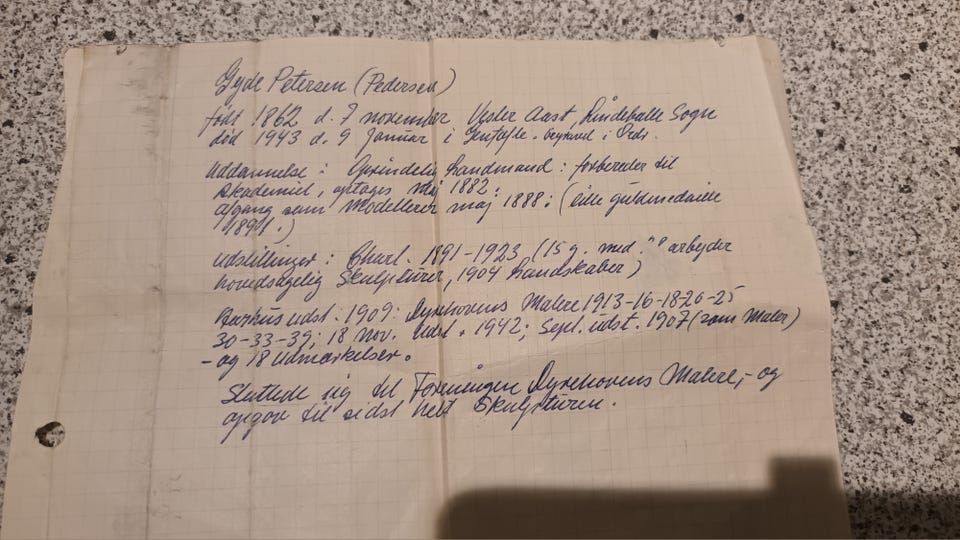 Gyde Petersen (Pedersen)
født 1862 d. 7 november Vester Aast, Lindeballe Sogn
død 1943 d. 9 Januar i Gentofte. i Ords.
Uddannelse: Oprindelig Landmand: forbereder til
akademiet, optages Maj 1882.
afgang som Modellerer maj 1888: (lille guldmedaille
1891.)
Udstillinger: Charl. 1891-1923 (15 g. med. arbejder
hovedsagelig Skulpturer, 1904 Landskaber)
udst. 1909: Dyrehavens Malere 1913-16-18-20-25
30-33-39; 18 Nov. Udst. 1942; Sept. udst. 1907 (som Maler)
- og 18 Udmærkelser.
Sluttede sig til Foreningen Dyrehavens Malere, - og
opgav til sidst helt Skulpturen.